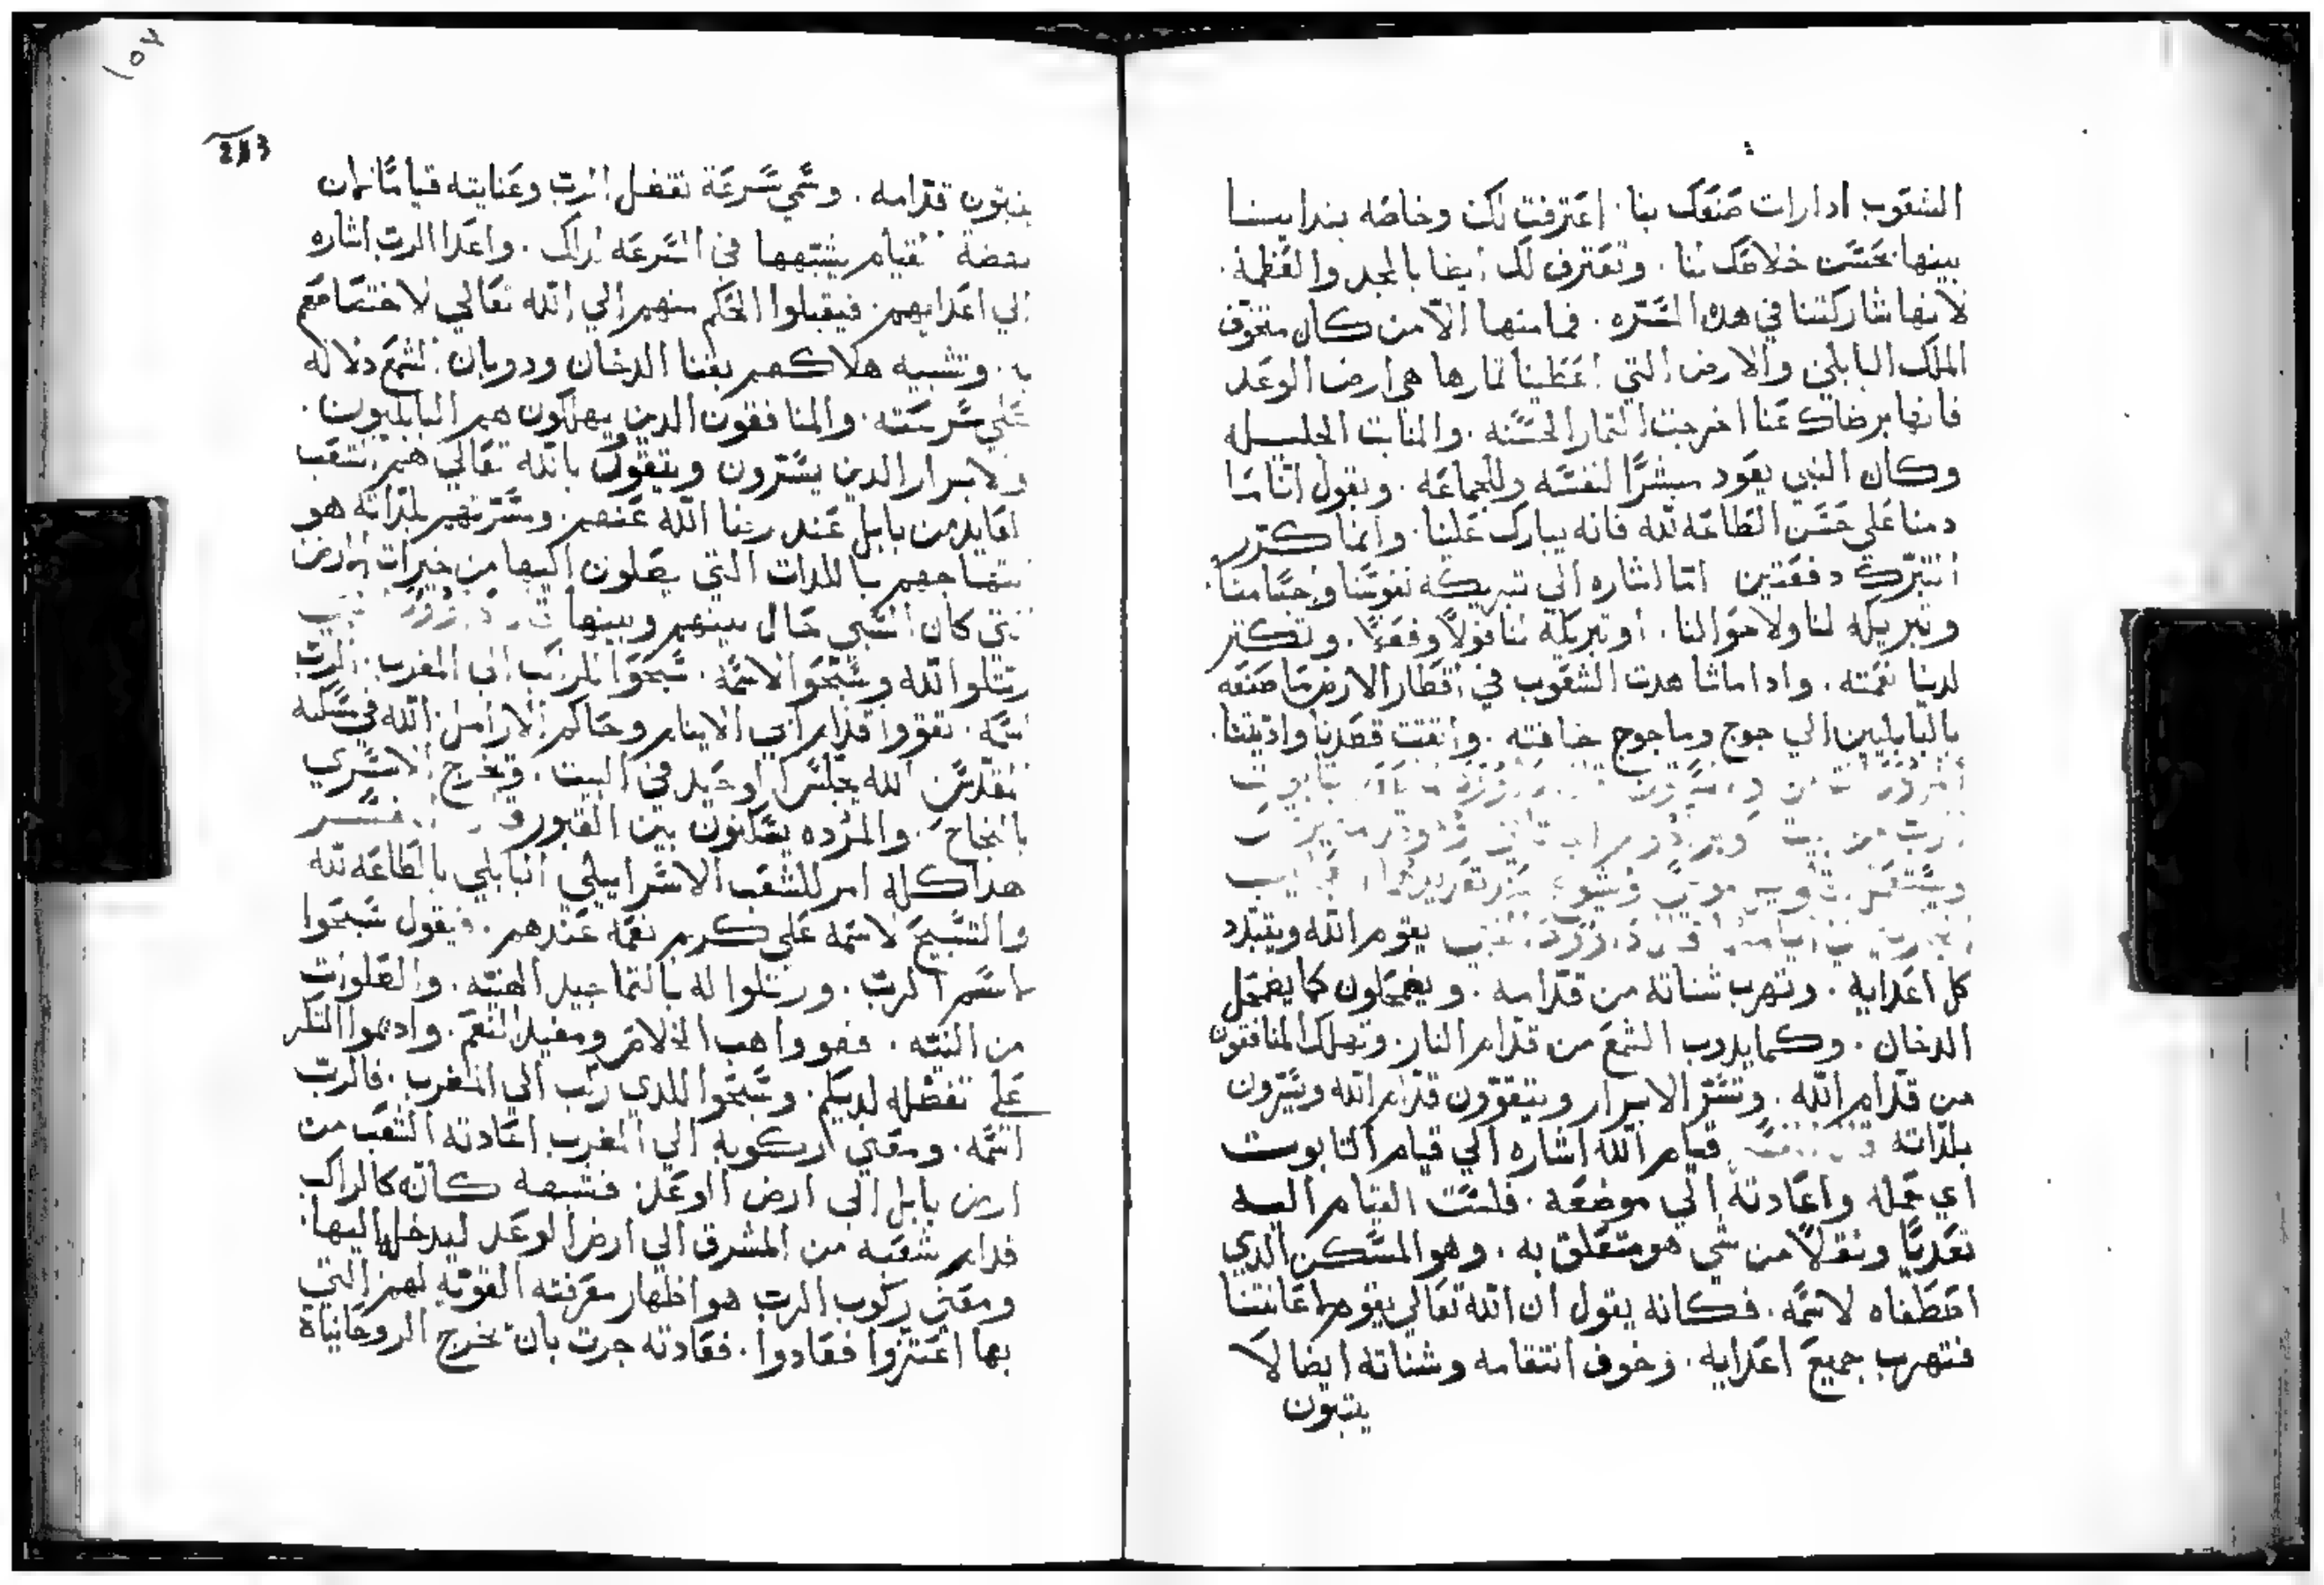 الشعوب ادا رات صنعك بنا. اعترفت لك وخاصه بندايسنا
بينها بحسن خلاصك لنا. وتعترف لك ايضا بالمجد والعظمة.
لانها شاركتنا في هده المسره. فما منها الا من كان متخوف
الملك البابلي والارض التي اعطينا ثمارها هي ارض الوعد
فانها برضاك عنا اخرجت الثمار الحسنه. والنبات الجليله
وكان النبي يعود مبشرًا لنفسه وللجماعه. ويقول اننا ما
دمنا على حسن الطاعه لله فانه يبارك علينا. وانما كرر
التبرك دفعتين اما اشاره الى تبريكه نفوسنا واجسامنا.
وتبريكه لنا ولاحوالنا. او تبريكه لنا قولًا وفعلًا. وتكثر
لدينا نعمته. وادا ما شاهدت الشعوب في اقطار الارض ما صنعه
بالبابليين الى جوج وماجوج خافته. واتقت قصدنا وادیتنا.
يقوم الله ويتبدد
كل اعدايه. وتهرب شناته من قدامه. ويضمحلون كما يضمحل
الدخان. وكما يدوب الشمع من قدام النار. وتهلك المنافقون
من قدام الله. وتسر الابرار ويتقوون قدام الله ويسرون
بلداته قيام الله اشاره الى قيام التابوت
اي حمله واعادته الى موضعه. فنسب القيام اليه
تعديًا ونقلًا من شي هو متعلق به. وهو المسكن الدي
اصطفاه لاسمه. فكانه يقول ان الله تعالى يقوم لاعانتنا
فتهرب جميع اعدايه. وخوف انتقامه وشناته ايضا لا
يثبتون
١٥٧
213
يثبتون قدامه. وسمي سرعة تفضل الرب وعنايته قيامًا لان
نهضة القيام يشبهها في السرعه لداك. واعدا الرب اشاره
الي اعدايهم. فيقبلوا الحكم منهم الي الله تعالي لاختصاصهم
به. وتشبيه هلاكهم بفنا الدخان ودوبان الشمع دلاله
علي سرعته. والمنافقون الدين يهلكون هم البابليون.
والابرار الدين يسرون ويتقوون بالله تعالي هم الشعب
العايد من بابل عند رضا الله عنهم. ومسرتهم بلداته هو
ابتهاجهم باللدات التي يصلون اليها من خيرات الارض
التي كان السبي حال بينهم وبينها
رتلوا لله وسبحوا لاسمه. سبحوا لمن ركب الى المغرب. الرب
اسمه. تقووا قدام ابي الايتام وحاكم الارامل الله في مسكنه
القدس. الله يجلس الوحيد في البيت. ويخرج الاسري
بالنجاح. والمرده يسكنون بين القبور
هدا كله امر للشعب الاسراييلي البابلي بالطاعه لله
والتسبيح لاسمه على كرم نعمه عندهم. فيقول سبحوا
لاسم الرب. ورتلوا له بالتماجيد الهنيه. والصلوات
من النيه. فهو واهب الخلاص ومفيد النعم. وادهموا الشكر
على تفضله لديكم. وسبحوا للدي ركب الي المغرب. فالرب
اسمه. ومعني ركوبه الي المغرب اعادته الشعب من
ارض بابل الى ارض الوعد. فشبهه كانه كالراكب
قدام شعبه من المشرق الي ارض الوعد ليدخل اليها.
ومعني ركوب الرب هو اظهار معرفته القويه لهم التي
بها اعتزوا فعادوا. فعادته جرت بان يخرج الروحانياة